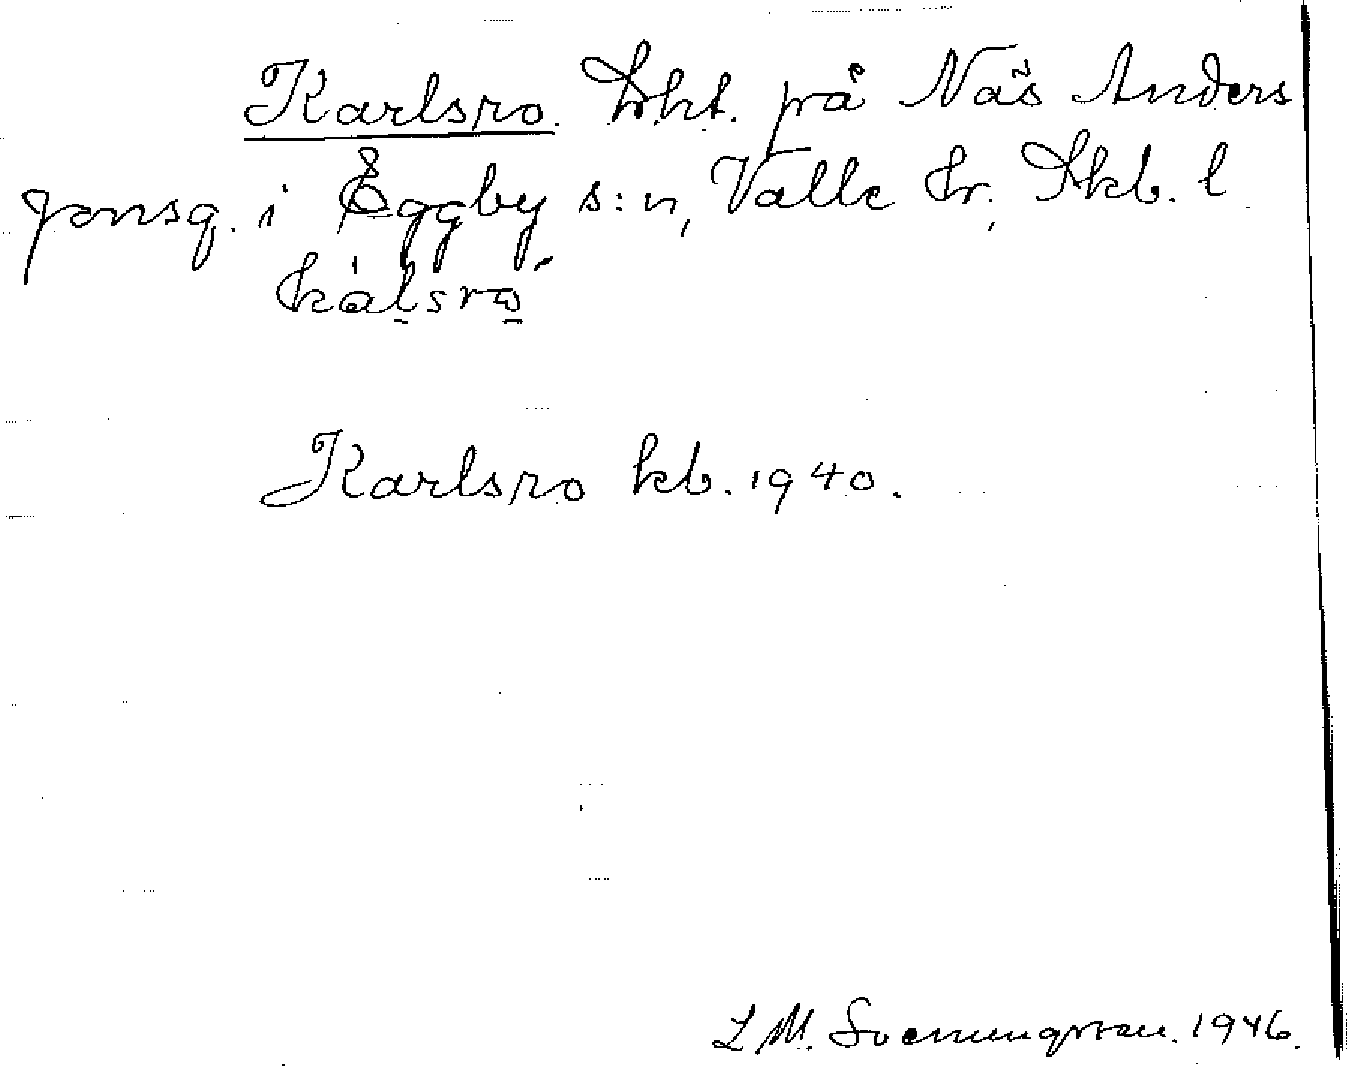 Karlsro. Lht. på Näs Anders
jonsg. i Eggby s:n, Valle hr, Skb. l
kalsro
Karlsro kb. 1940.
L M. Svenungsson. 1946.